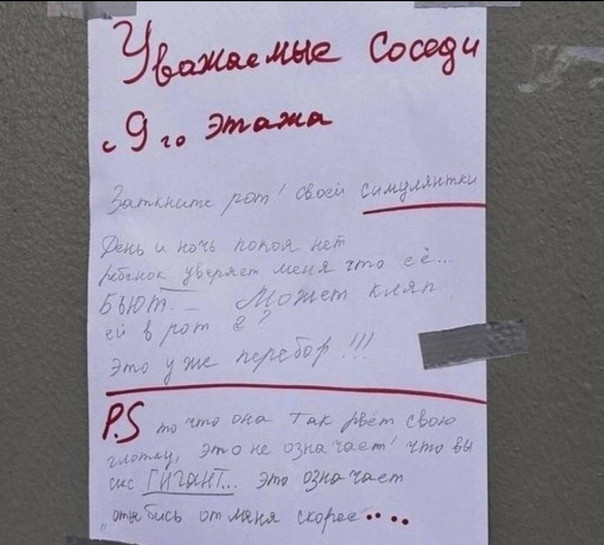 Уважаемые соседи
с 9 го этажа
Заткните рот! своей симулянтки
День и ночь покоя нет
ребёнок уверяет меня что её...
БЬЮТ... Может кляп
ей в рот ?
Это уже перебор!!!
P.S то что она так рвёт свою
глотку, это не означает! что вы
секс ГИГАНТ... это означает
отъ..бись от меня скорее....